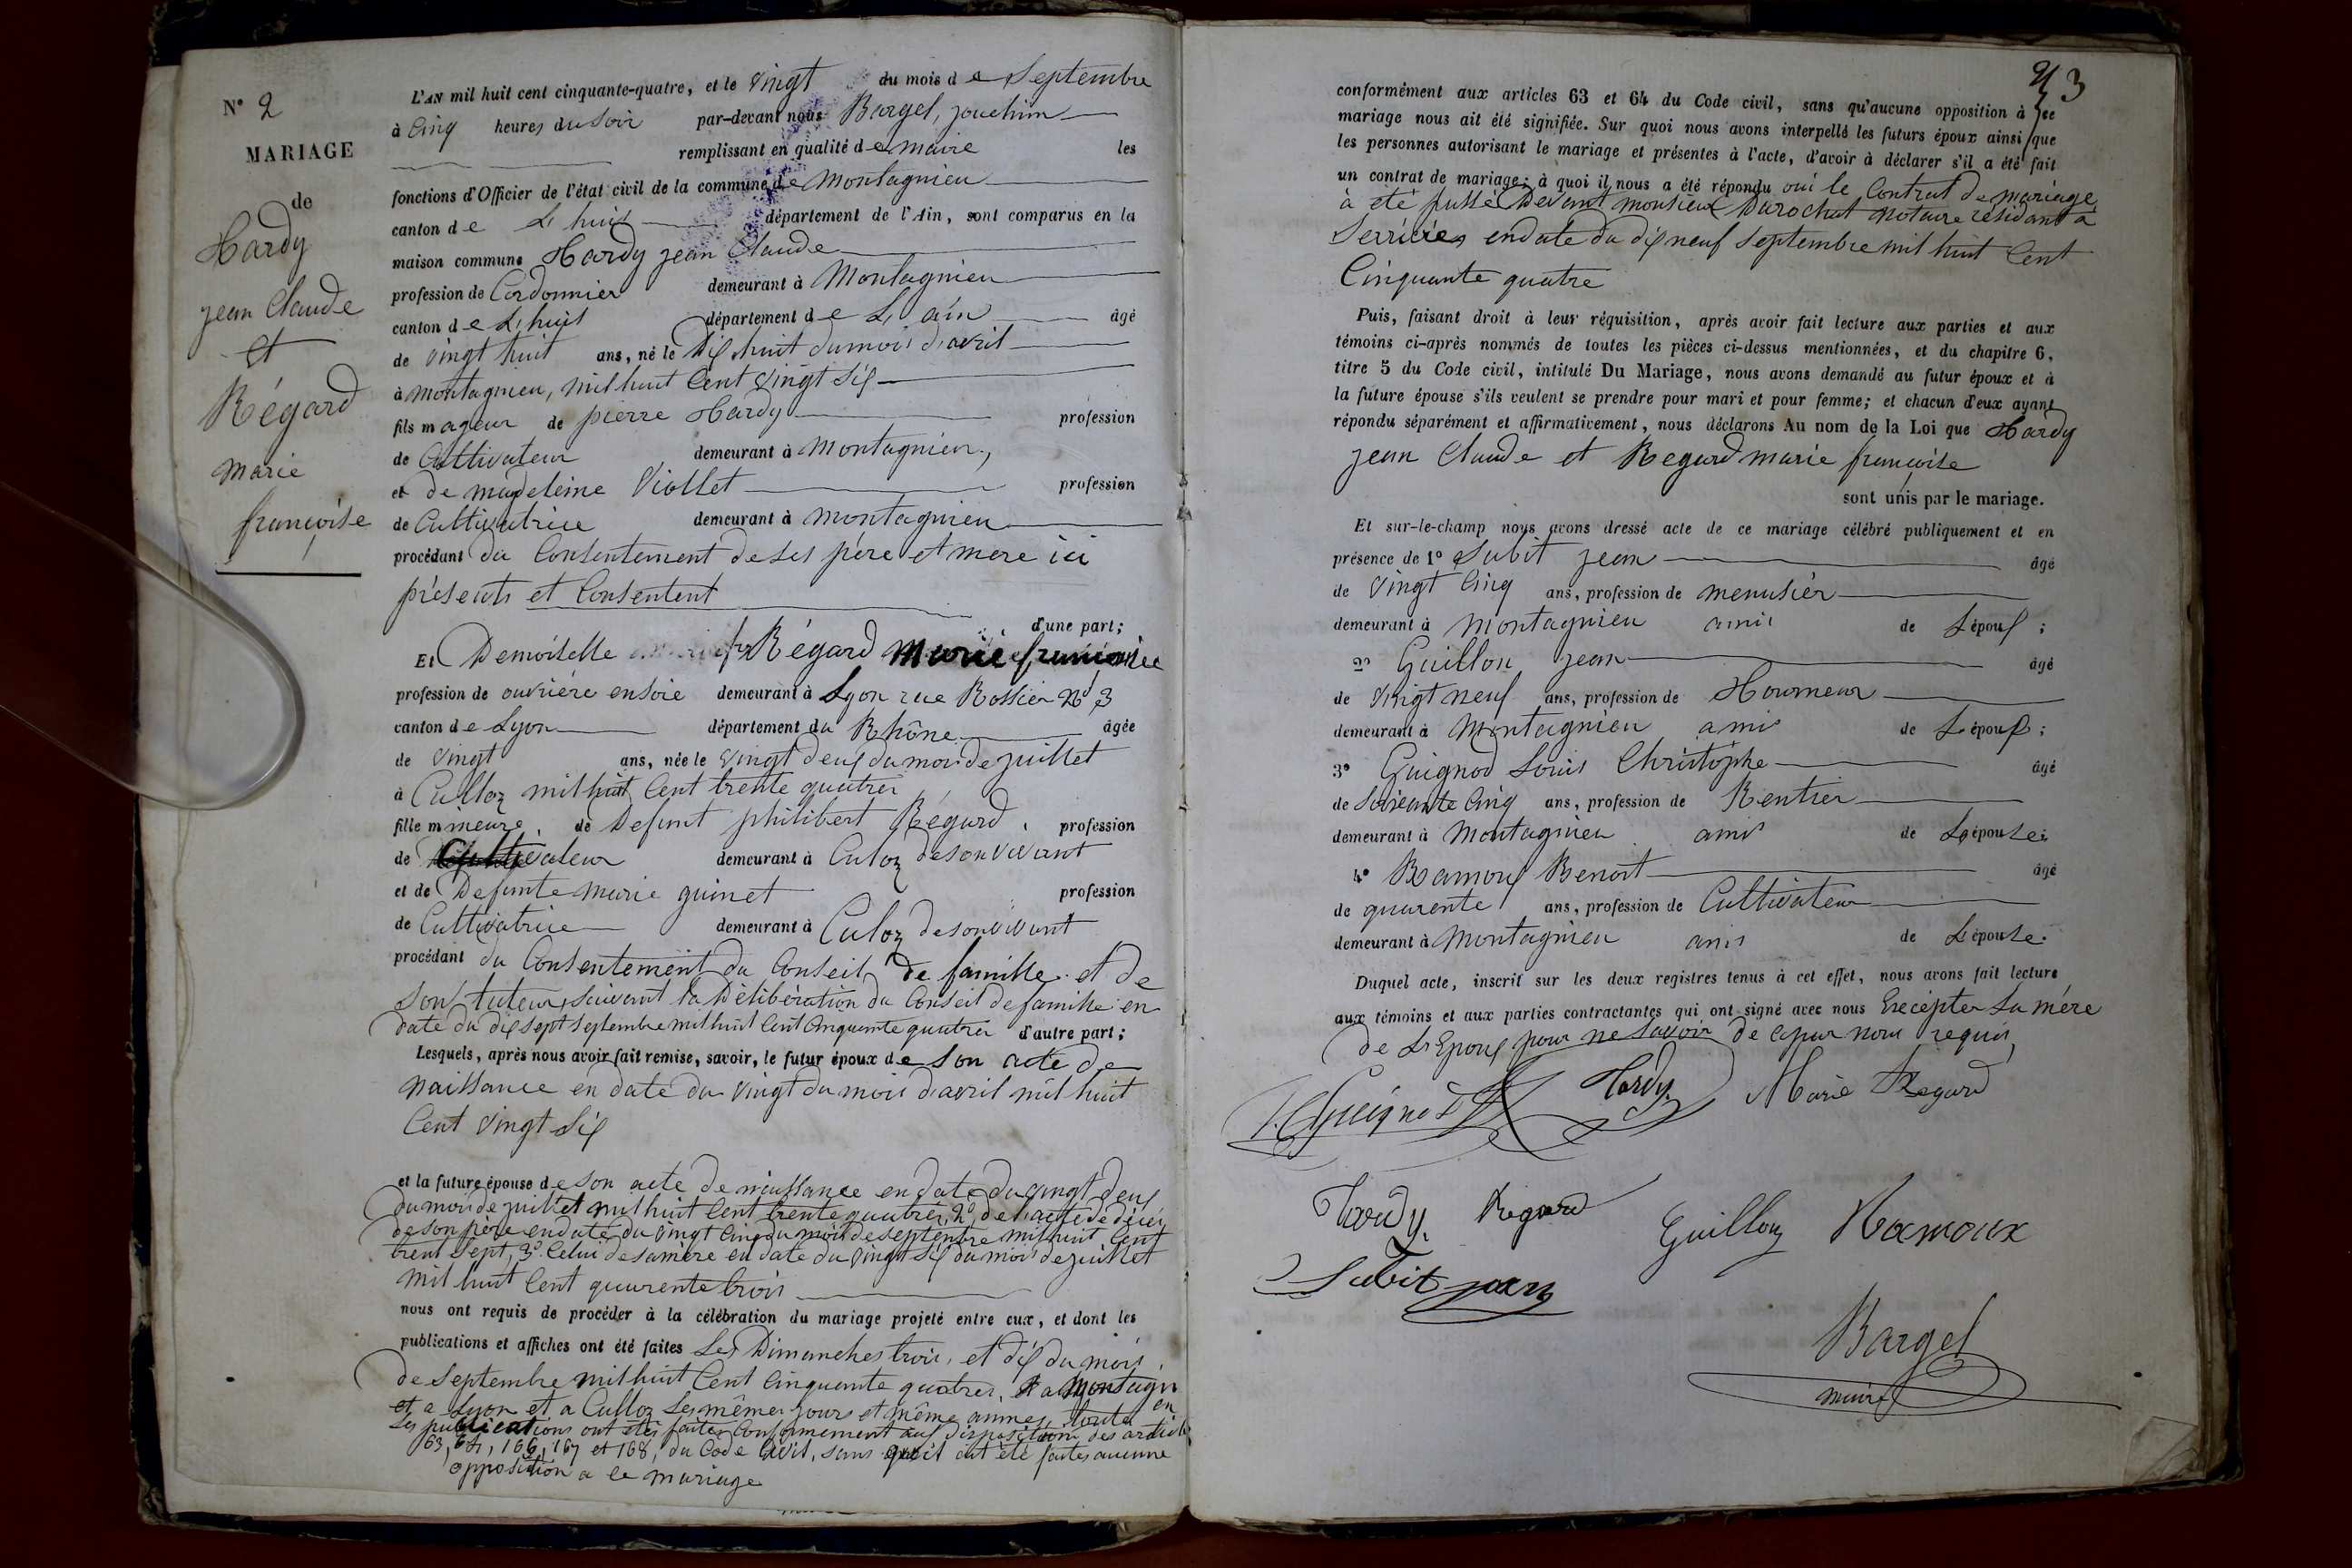 N° 2
MARIAGE
de
Hardy
jean Claude
et
Régard
marie
françoise
L'AN mil huit cent cinquante-quatre, et le vingt du mois de Septembre
à Cinq heures du Soir par-devant nous Bargel, jouchim
remplissant en qualité de maire les
fonctions d'Officier de l'état civil de la commune de Montagnieu
canton de L'huis département de l'Ain, sont comparus en la
maison commune Hardy jean Claude
profession de Cordonnier demeurant à Montagnieu
canton de L'huis département de L'ain âgé
de vingt huit ans, né le Dix huit du mois d'avril
à montagnieu, mil huit Cent vingt Six
fils mageur de pierre Hardy profession
de Cultivateur demeurant à Montagnieu,
et de madeleine Viollet profession
de Cultivatrice demeurant à Montagnieu
procédant du Consentement de Ses père et mere ici
présents et Consentent
d'une part;
Et Demoiselle Régard Marie françoise
profession de ouvrière en Soie demeurant à Lyon rue Rossier N° 3
canton de Lyon département du Rhône âgée
de vingt ans, née le vingt deux du mois de juillet
à Culloz mil huit Cent trente quatre
fille mineure de Defunt philibert Régard, profession
de Cultivateur demeurant à Culoz de son vivant
et de Defunte marie guinet profession
de Cultivatrice demeurant à Culoz de son vivant
procédant du Consentement du Conseil de famille et de
Son tuteur, Suivant la Délibération du Conseil de famille en
date du dix sept Septembre mil huit Cent Cinquante quatre d'autre part;
Lesquels, après nous avoir fait remise, savoir, le futur époux de Son acte de
naissance en date du vingt du mois d'avril mil huit
Cent vingt Six
et la future épouse de son acte de naissance en date du vingt deux
du mois de juillet mil huit Cent trente quatre, 2° de l'acte de décès
de son père en date du vingt Cinq du mois de septembre mil huit Cent
trent Sept, 3° Celui de sa mère en date du vingt Six du mois de juillet
mil huit Cent quarente trois
nous ont requis de procéder à la célébration du mariage projeté entre eux, et dont les
publications et affiches ont été faites Les Dimanches trois, et dix du mois
de Septembre mil huit Cent Cinquante quatre, a Montagn
et a Lyon et a Culloz Les mêmes jours et même annee, toute en
Les publications ont étés faites Conformement aux Dispositions des article
63, 64, 166, 167 et 168, du Code Civil, sans qu'il ait été faites aucune
opposition a ce mariage
3
conformément aux articles 63 et 64 du Code civil, sans qu'aucune opposition à ce
mariage nous ait été signifiée. Sur quoi nous avons interpellé les futurs époux ainsi que
les personnes autorisant le mariage et présentes à l'acte, d'avoir à déclarer s'il a été fait
un contrat de mariage; à quoi il nous a été répondu oui le Contrat de mariage
à été passé Devant monsieur Durochat notaire résidant à
Serrières en date du dix neuf Septembre mil huit Cent
Cinquante quatre
Puis, faisant droit à leur réquisition, après avoir fait lecture aux parties et aux
témoins ci-après nommés de toutes les pièces ci-dessus mentionnées, et du chapitre 6,
titre 5 du Code civil, intitulé Du Mariage, nous avons demandé au futur époux et à
la future épouse s'ils veulent se prendre pour mari et pour femme; et chacun d'eux ayant
répondu séparément et affirmativement, nous déclarons Au nom de la Loi que Hardy
jean Claude et Regard marie françoise
sont unis par le mariage.
Et sur-le-champ nous avons dressé acte de ce mariage célébré publiquement et en
présence de 1° Subit jean âgé
de vingt Cinq ans, profession de menusier
demeurant à Montagnieu amis de L'époux ;
2° Guillon jean âgé
de vingt neuf ans, profession de
demeurant à Montagnieu amis de L'époux ;
3° Guignod Louis Christophe âgé
de Soixante Cinq ans, profession de Rentier
demeurant à Montagnieu amis de L'épouse;
4° Ramoux Benoit âgé
de quarente ans, profession de Cultivateur
demeurant à Montagnieu amis de L'épouse.
Duquel acte, inscrit sur les deux registres tenus à cet effet, nous avons fait lecture
aux témoins et aux parties contractantes qui ont signé avec nous Excepter La mère
de L'Epoux pour ne Savoir de Ce par nous requis,
Guignod Hardy Marie Regard
Hardy. Regard Guillon Ramoux
Subit jean
Bargel
maire